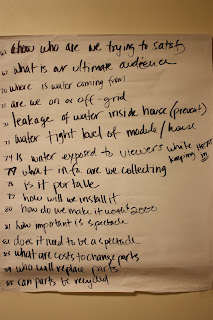 who are we trying to satisf
what is our ultimate audience
70 where is water coming from
are we on or off-grid
leakage of water inside house (prevent)
water tight level of module / house
74 Is water exposed to viewers while HEAT
keeping in
what info are we collecting
is it portable
how will we install it
80 how do we make it worth $2000
81 how important is spectacle
82 does it need to be a spectacle
what are costs to change parts
who will replace parts
can parts be recycled